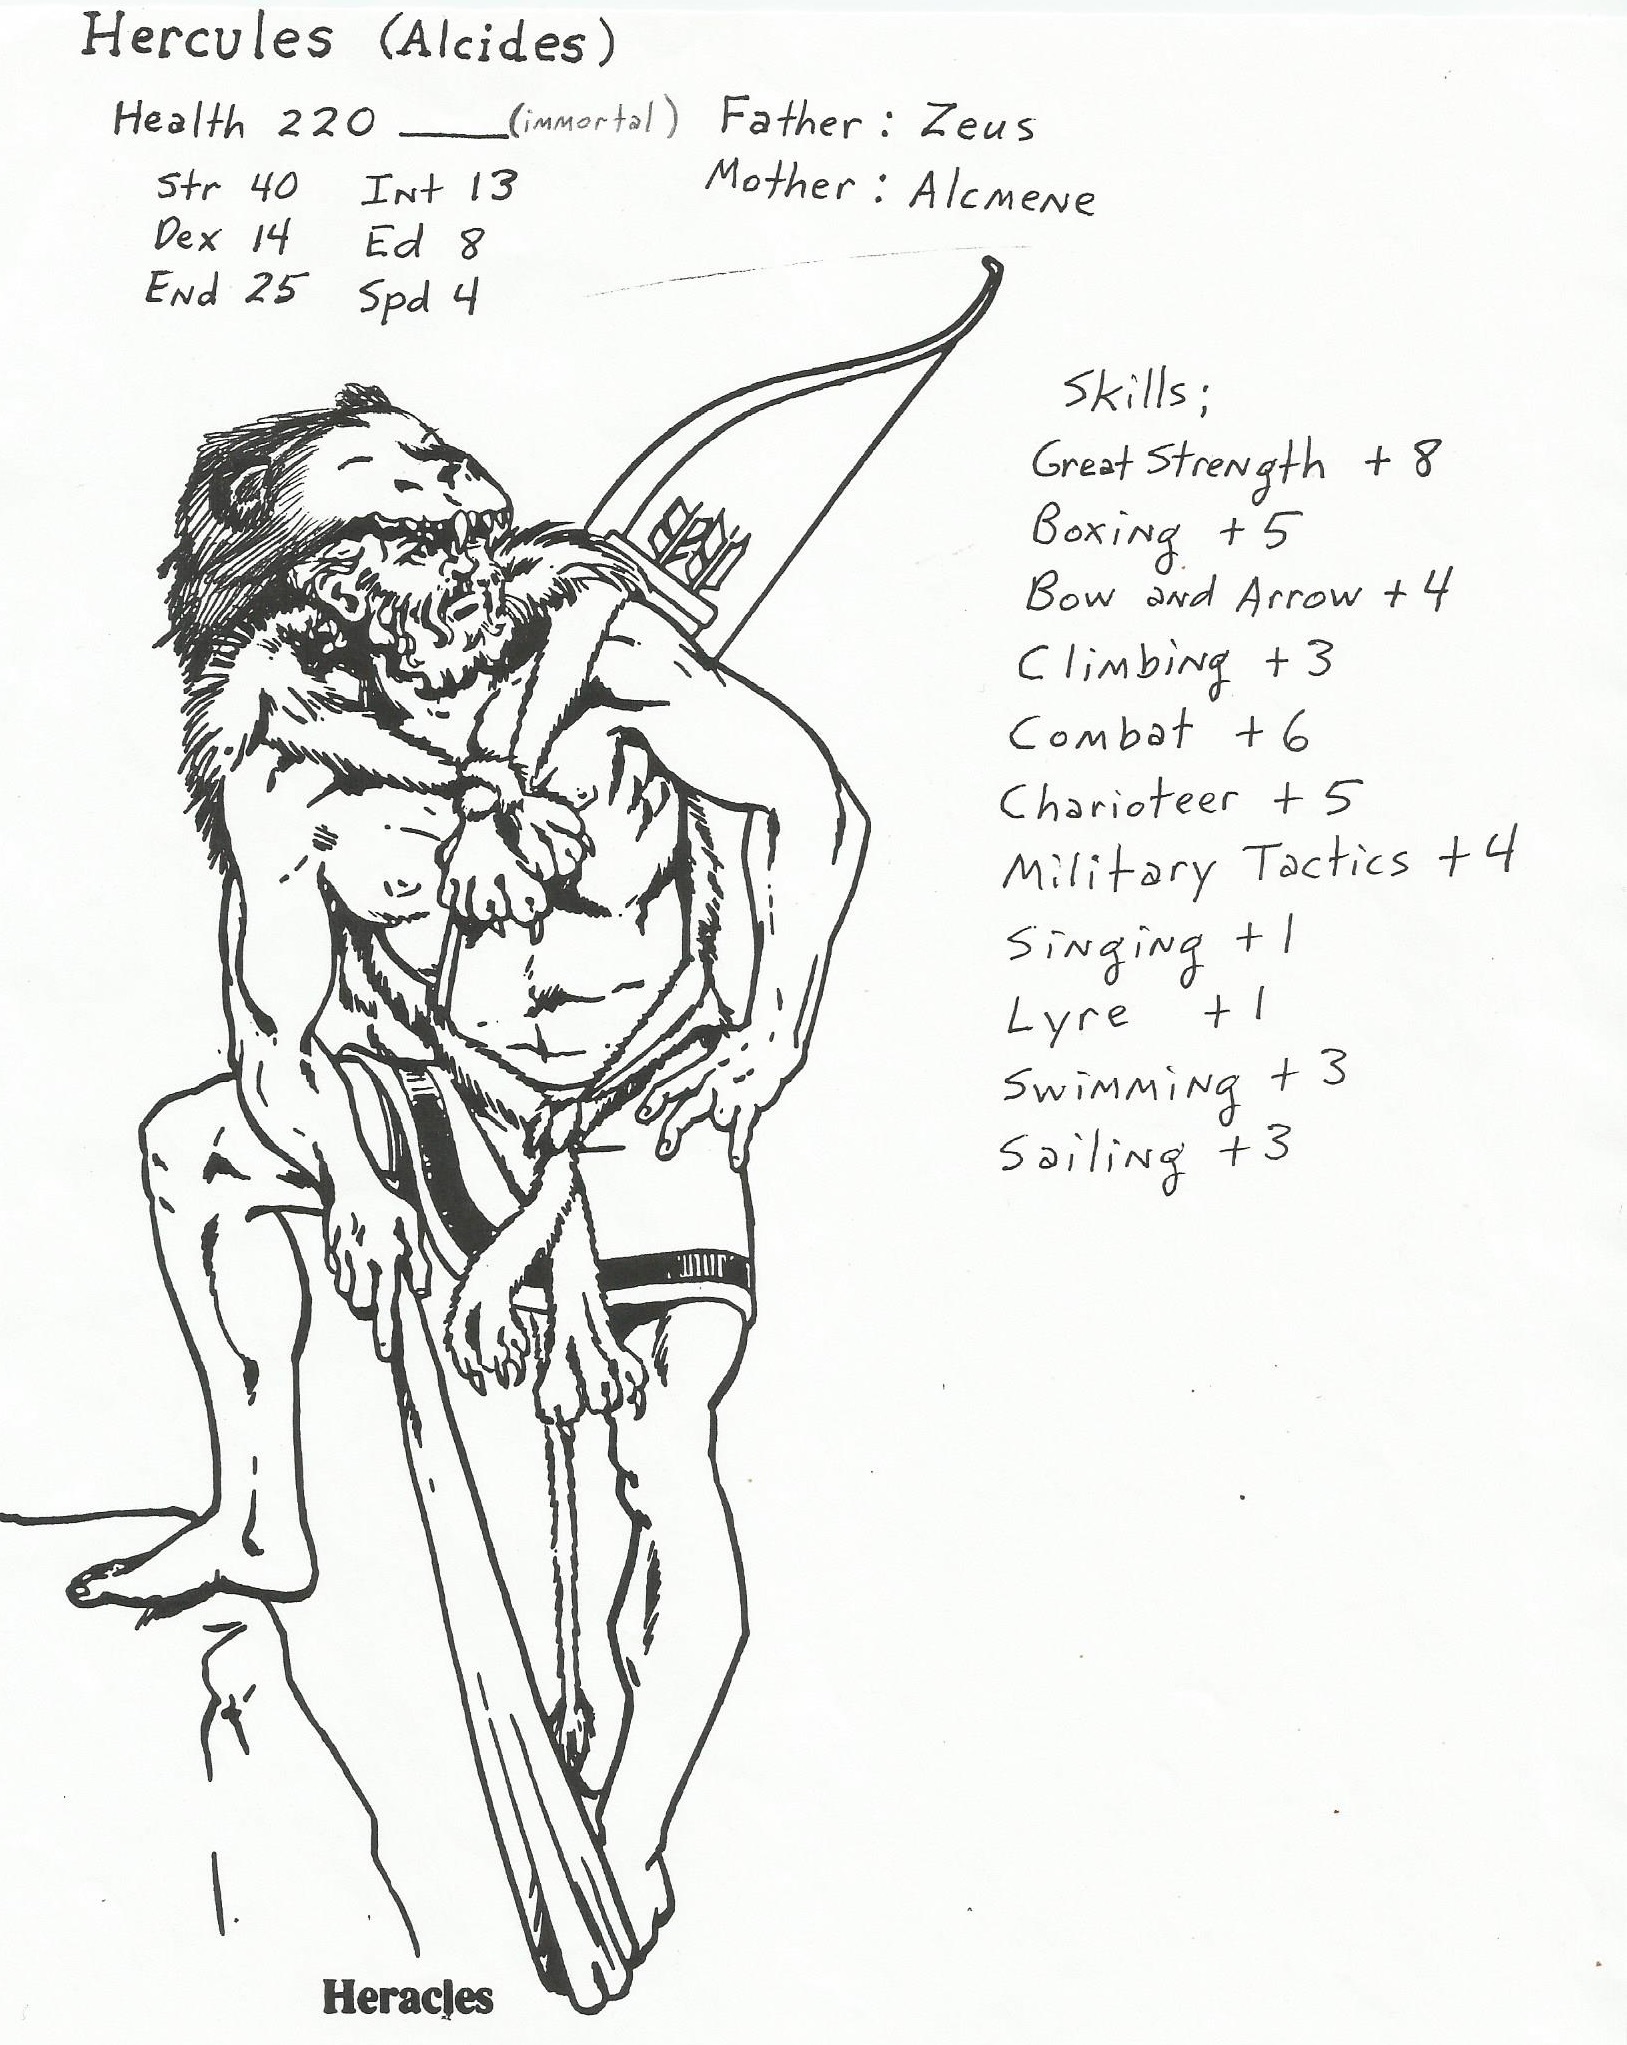 Hercules (Alcides)
Health 220 ____(immortal) Father: Zeus
Mother: Alcmene
Str 40 Int 13
Dex 14 Ed 8
End 25 Spd 4
Skills;
Great Strength + 8
Boxing + 5
Bow and Arrow + 4
Climbing + 3
Combat + 6
Charioteer + 5
Military Tactics + 4
Singing + 1
Lyre + 1
Swimming + 3
Sailing + 3
Heracles